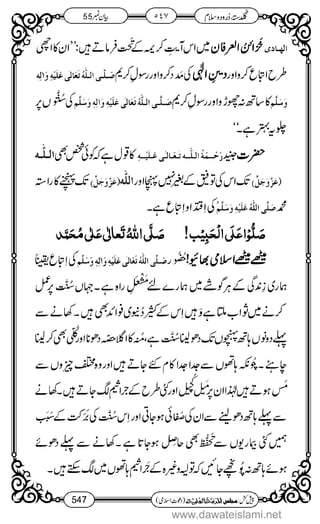 گلدستۂ دُرود و سلام ٥٤٧ بیان نمبر 55
الہادی خزائنُ العرفان میں اس آیتِ کریمہ کے تحت فرماتے ہیں: ’’ان کا اچھی
طرح اتباع کرو اور دینِ الٰہی کی مدد کرو اور رسولِ کریم صَلَّی اللہُ تَعَالٰی عَلَیْہِ وَاٰلِہٖ
وَسَلَّم کا ساتھ نہ چھوڑو اور رسولِ کریم صَلَّی اللہُ تَعَالٰی عَلَیْہِ وَاٰلِہٖ وَسَلَّم کی سُنّتوں پر
چلو یہ بہتر ہے۔‘‘
حضرت جنید رَحْمَۃُ اللہِ تَعَالٰی عَلَیْہ کا قول ہے کہ کوئی شخص بھی اللہ
(عَزَّوَجَلَّ) تک اس کی توفیق کے بغیر نہیں پہنچا اور اللہ (عَزَّوَجَلَّ) تک پہنچنے کا راستہ
محمد صَلَّی اللہُ عَلَیْہِ وَسَلَّم کی اِقْتِدا و اتباع ہے۔
صَلُّوْا عَلَی الْحَبِیْب! صَلَّی اللہُ تَعَالٰی عَلٰی مُحَمَّد
میٹھے میٹھے اسلامی بھائیو! حُضُور صَلَّی اللہُ تَعَالٰی عَلَیْہِ وَاٰلِہٖ وَسَلَّم کی اتباع یقیناً
ہماری زندگی کے ہر گوشے میں ہمارے لئے مَشْعَلِ راہ ہے۔ جہاں سُنَّت پر عمل
کرنے میں ثواب ملتا ہے وہیں اس کے کثیر دُنیوی فوائد بھی ہیں۔ کھانے سے
پہلے دونوں ہاتھ پہنچوں تک دھولینا سُنّت ہے، مُنہ کا اگلا حصّہ دھونا اور کلّی بھی کر لینا
چاہئے۔ چونکہ ہاتھوں سے جُدا جُدا کام کئے جاتے ہیں اور وہ مختلف چیزوں سے
مَس ہوتے ہیں لہٰذا ان پر مَیل کُچیل اور کئی طرح کے جراثیم لگ جاتے ہیں۔ کھانے
سے پہلے ہاتھ دھولینے سے ان کی صَفائی ہوجاتی اور اس سُنّت کی بَرَکت کے سَبَب
ہمیں کئی بیماریوں سے تَحَفُّظ بھی حاصل ہوجاتا ہے۔ کھانے سے پہلے دھوئے
ہوئے ہاتھ نہ پُونچھے جائیں کہ تولیہ وغیرہ کے جَراثیم ہاتھوں میں لگ سکتے ہیں۔
547 پیش کش: مجلس المدینۃ العلمیۃ (دعوتِ اسلامی)
www.dawateislami.net